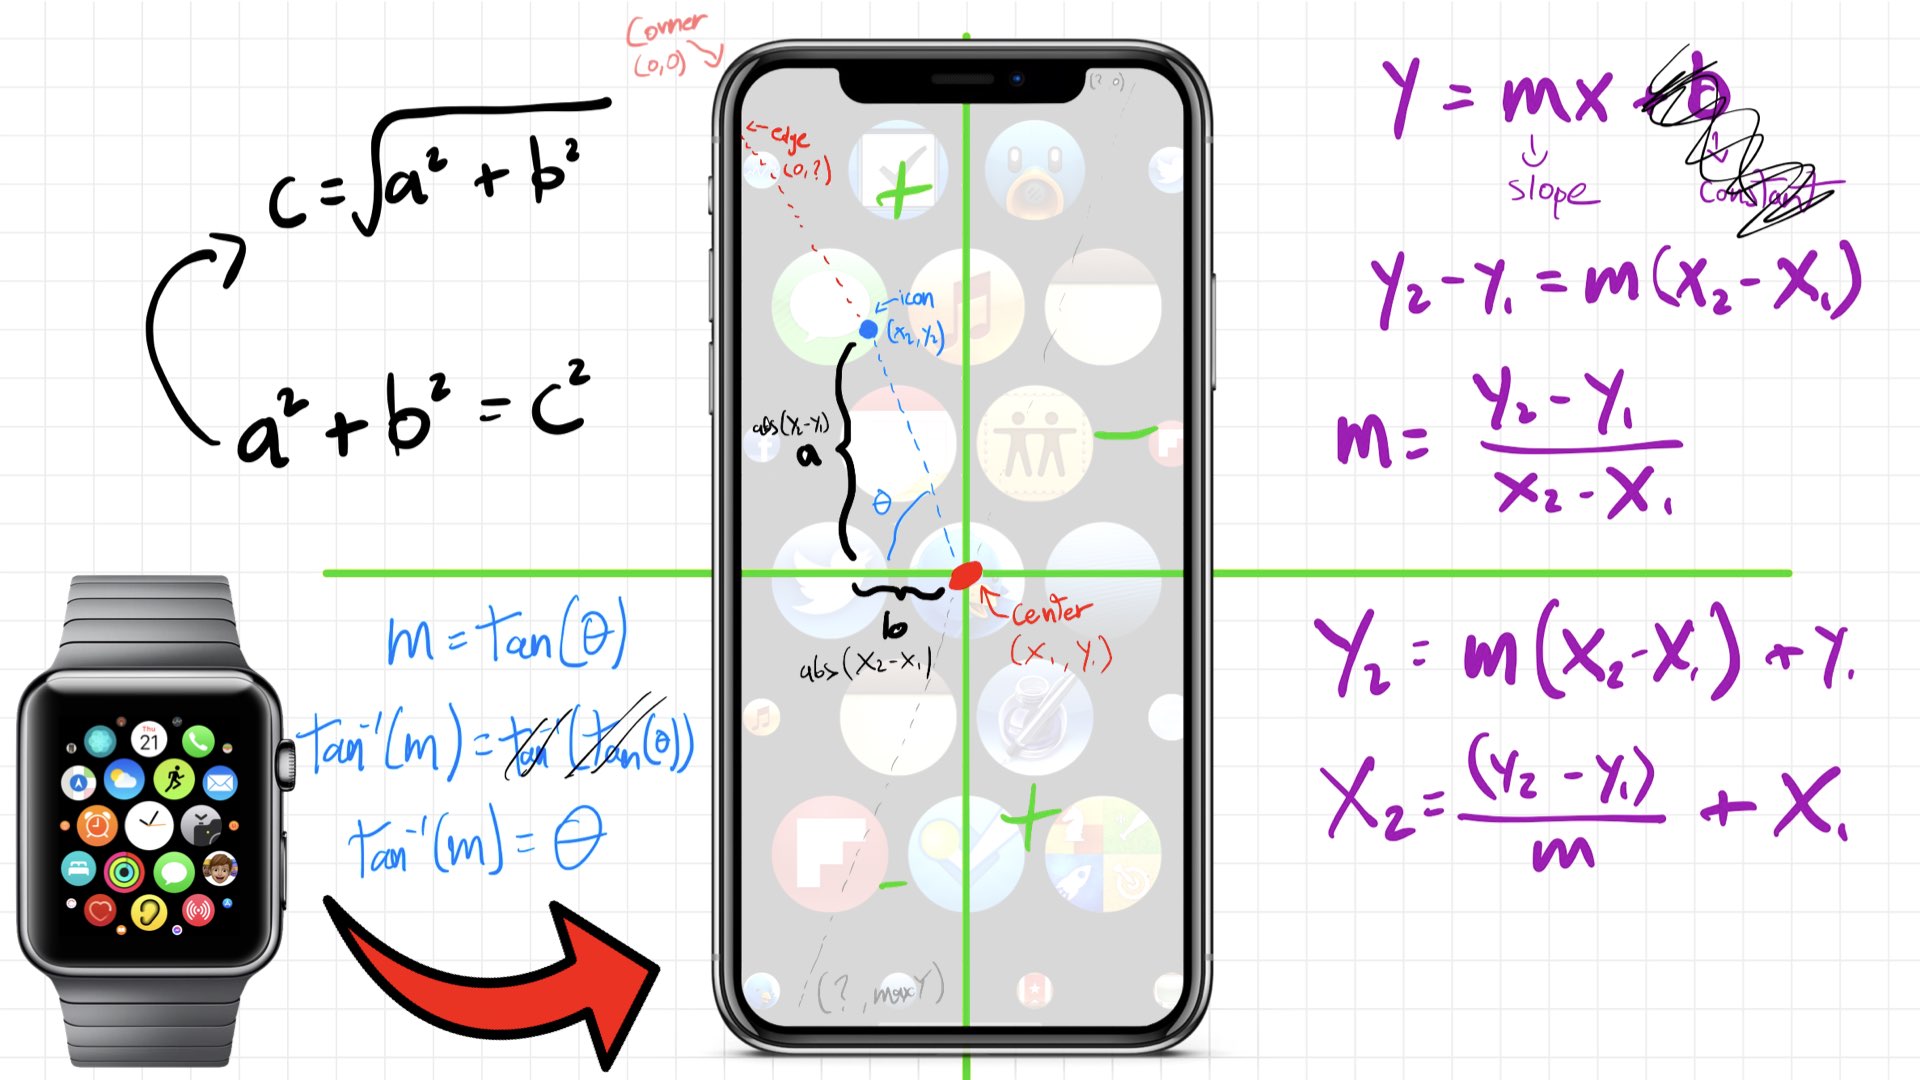 Corner
(0,0)
c = √a² + b²
a² + b² = c²
m = tan(θ)
tan⁻¹(m) = tan⁻¹(tan(θ))
tan⁻¹(m) = θ
Thu
21
(?,0)
←edge
(0,?)
+
←icon
(x₂,y₂)
abs(y₂-y₁)
a
θ
−
b
abs(x₂-x₁)
center
(x₁,y₁)
+
−
(?,maxY)
y = mx + b
slope
constant
y₂-y₁ = m(x₂-x₁)
m = y₂-y₁
x₂-x₁
y₂ = m(x₂-x₁) + y₁
x₂ = (y₂-y₁) + x₁
m